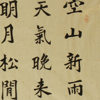 空山新雨
天氣晚来
明月松間